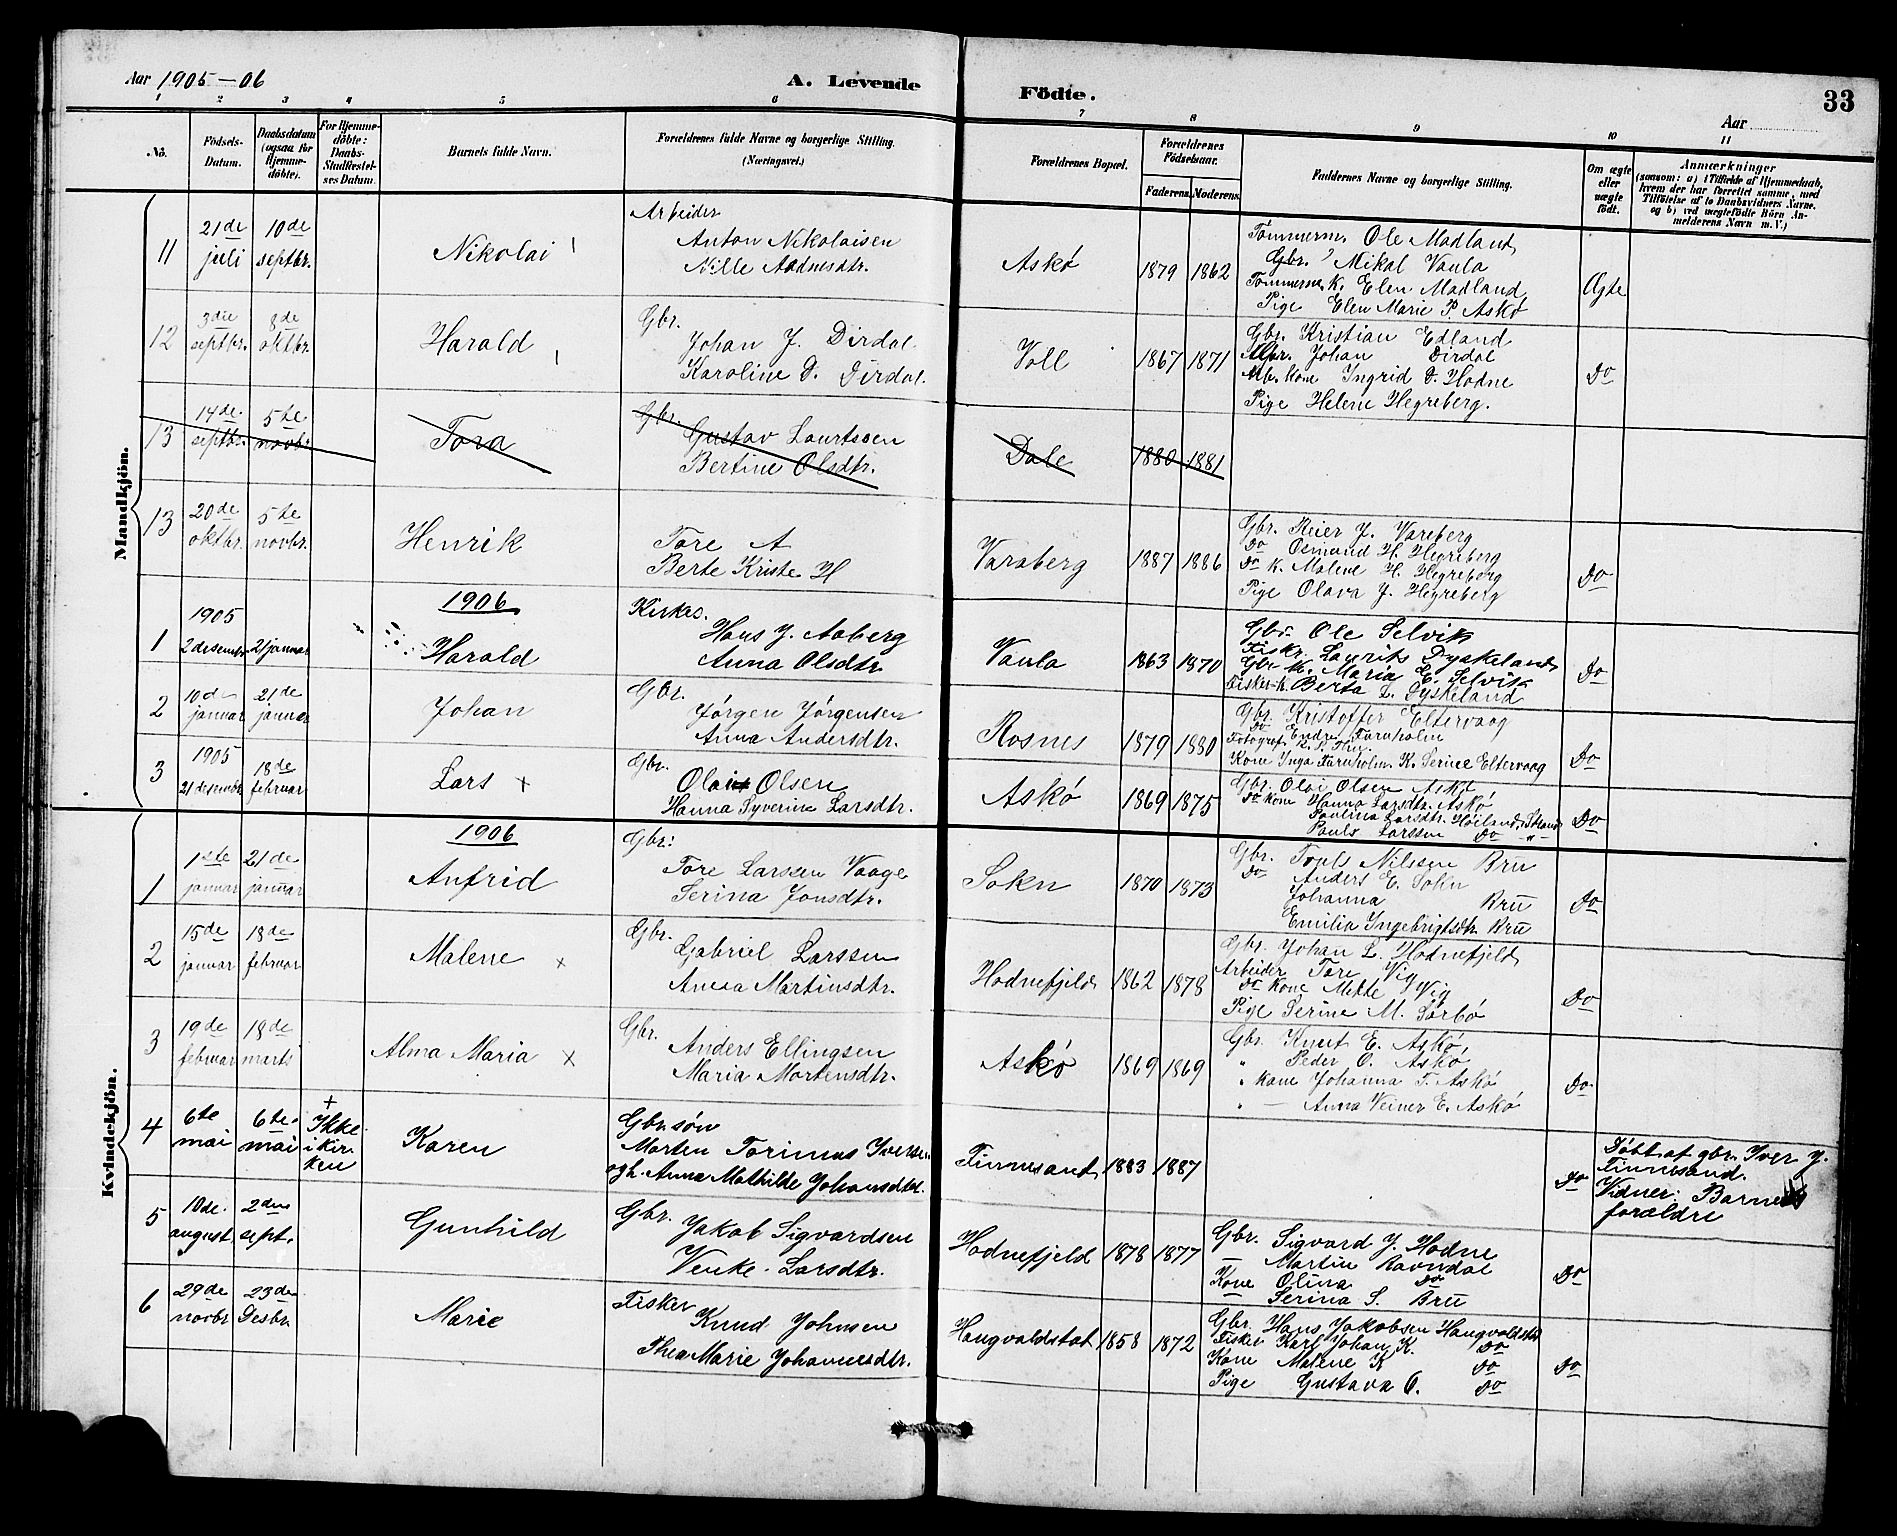 Aar 1905—06
A. Levende
Födte.
Aar
33
1 2 3 4 5 6 7 8 9 10 11
No.
Födsels-Datum.
Daabsdatum (ogsaa for Hjemme-döbte).
For Hjemme-döbte: Daabs-Stadfæstel-ses Datum.
Barnets fulde Navn.
Forældrenes fulde Navne og borgerlige Stilling. (Næringsvei.)
Forældrenes Bopæl.
Forældrenes Födselsaar.
Faderens. Moderens.
Faddernes Navne og borgerlige Stilling.
Om ægte eller uægte födt.
Anmærkninger
(saasom: a) i Tilfælde af Hjemmedaab, hvem der har forrettet samme, med Tilföielse af to Daabsvidners Navne. og b) ved uægtefödte Börn An-melderens Navn m. V.)
Mandkjön.
11
21de juli
10de septbr.
Nikolai
Arbeider
Anton Nikolaisen
Nille Adnesdtr.
Askø
1879 1862
Tømmerm. Ole Madland
Gbr. Mikal Vaula
Tømmerm. k. Elen Madland
Pige Elen Marie P. Askø
Ægte
12
3die septbr.
8de oktbr.
Harald
Gbr.
Johan J. Dirdal
Karoline D. Dirdal.
Voll
1867 1871
Gbr. Kristian Edland
Johan Dirdal
Kone Ingrid D. Hodne
Pige Helene Hegreberg.
Do
13
14de septbr.
5te novbr.
Tora
Gbr.
Gustav Lauritssen
Bertine Olsdtr.
Dale
1880 1881
13
20de oktbr.
5te novbr.
Henrik
Tore A
Berte Kriste H
Varaberg
1887 1886
Gbr. Reier J. Vareberg
Do Osmund H. Hegreberg
Do k. Malene H. Hegreberg
Pige Olava J. Hegreberg
Do
1906
1
1905
2 desembr
21 januar
Harald
Kirkes.
Hans J. Aaberg
Anna Olsdtr
Vaula
1863 1870
Gbr. Ole Selvik
Fiskr. Laurits Dyskeland
Gbr. k. Maria E. Selvik
Fisker-k. Berta L. Dyskeland
Do
2
10de januar
21de januar
Johan
Gbr.
Jørgen Jørgensen
Anna Andersdtr.
Rosnes
1879 1880
Gbr. Kristoffer Eltervaag
Do Endre Furuholm
Fotograf
Kone Inga Furuholm K. Serine Eltervaag
Do
3
1905
21 desembr
18de februar
Lars x
Gbr.
Olai Olsen
Hanna Syverine Larsdtr.
Askø
1869 1875
Gbr. Olai Olsen Askø
Do Kone Hanna Larsdtr. Askø
Paulina Larsdtr. Høiland, Strand
Pauls Larssen Do "
Do
Kvindekjön.
1906
1
1ste januar
21de januar
Anfrid
Gbr:
Tore Larssen Vaage
Serina Jonsdtr.
Sokn
1870 1873
Gbr. Troels Nilssen Bru
Do Anders E. Sokn
Johanna Bru
Emilia Ingebrigtsdtr. Bru
Do
2
15de januar
18de februar
Malene x
Gbr.
Gabriel Larssen
Anna Martinsdtr.
Hodnefjeld
1862 1878
Gbr. Johan L. Hodnefjeld
Arbeider Tore Vig
Do Kone Mette Vig
Pige Serine M. Sørbø
Do
3
19de februar
18de marts
Alma Maria x
Gbr.
Anders Ellingsen
Maria Mortensdtr.
Askø
1869 1869
Gbr. Knut E. Askø,
" Peder O. Askø,
" Kone Johanna T. Askø
" — Anna Veiner E. Askø
Do
4
6te mai
6te mai
+ Ikke i kirken
Karen
Gbr. søn
Morten Torinus Iversen
og h. Anna Mathilde Johansdtr.
Finnesand
1883 1887
Do
Døbt af gbr. Iver J. Finnesand.
Vidner: Barnets forældre
5
10de august
2den sept.
Gunhild
Gbr. Jakob Sigvardsen
Venke Larsdtr.
Hodnefjeld
1878 1877
Gbr. Sigvard J. Hodne
— Martin Ravndal
Kone Olina Do
— Serina S. Bru
Do
6
29de novbr
23de Desbr.
Marie
Fisker
Knud Johnsen
Thea Marie Johannesdtr.
Haugvaldstat
1858 1872
Gbr. Hans Jakobsen Haugvaldstat
Fisker Karl Johan K. Do
Kone Malene K Do
Pige Gustava O. Do
Do